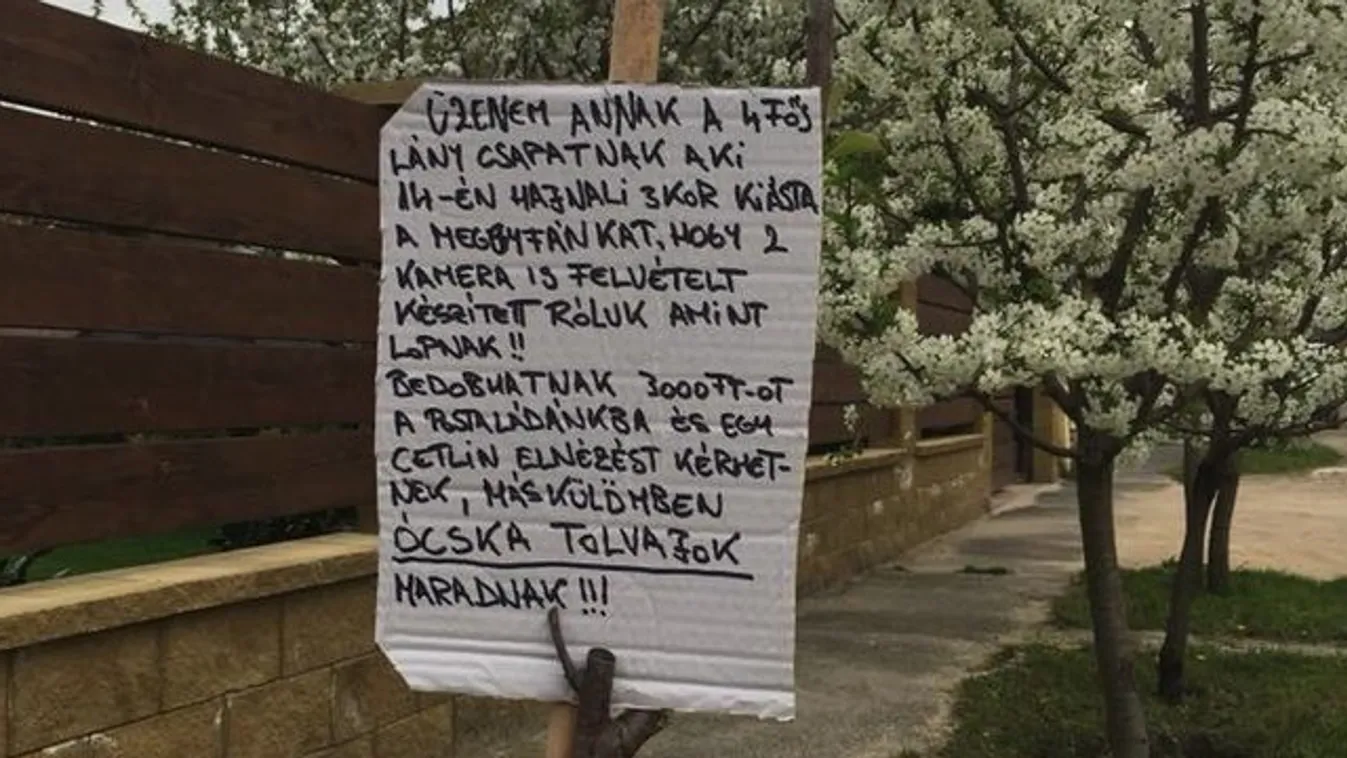 ÜZENEM ANNAK A 4 FŐS
LÁNY CSAPATNAK AKI
14-ÉN HAJNALI 3KOR KIÁSTA
A MEGGYFÁNKAT, HOGY 2
KAMERA IS FELVÉTELT
KÉSZÍTETT RÓLUK AMINT
LOPNAK!!
BEDOBHATNAK 3000FT-OT
A POSTALÁDÁNKBA ÉS EGY
CETLIN ELNÉZÉST KÉRHET-
NEK, MÁSKÜLÖMBEN
ÓCSKA TOLVAJOK
MARADNAK!!!